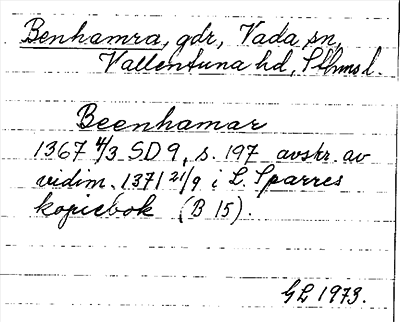 Benhamra, gdr, Vada sn,
Vallentuna hd, Sthms l.
Beenhamar
1367 4/3 SD 9, s. 197 avskr. av
vidim. 1371 21/9 i L. Sparres
kopiebok (B 15).
GL 1973.